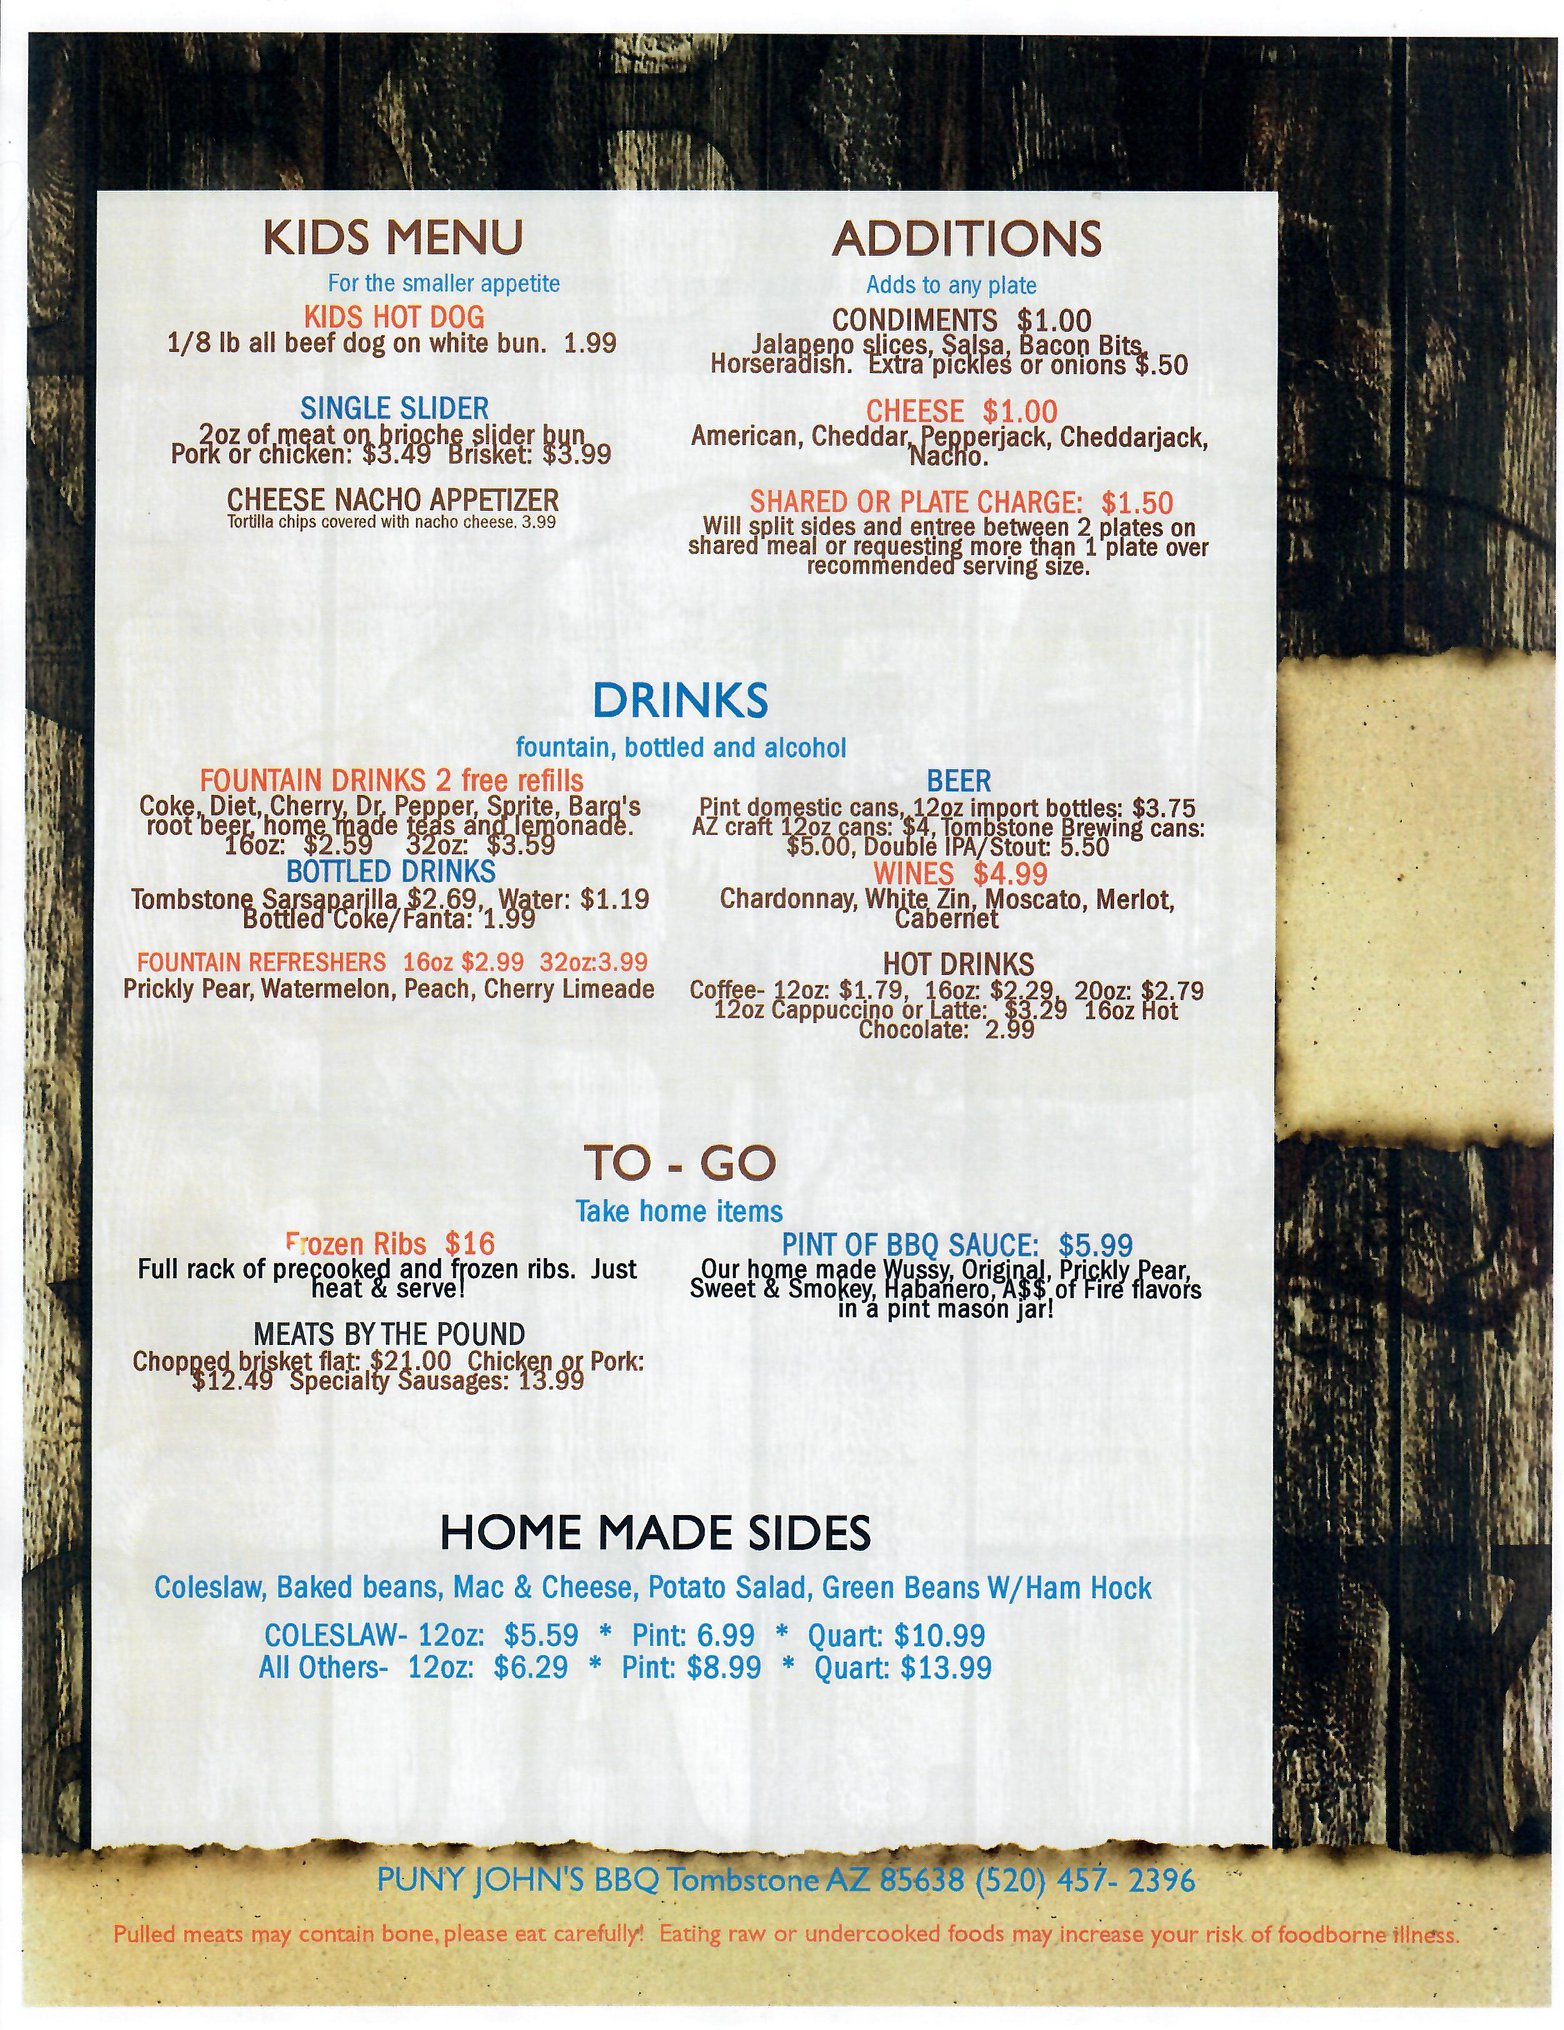 KIDS MENU
For the smaller appetite
KIDS HOT DOG
1/8 lb all beef dog on white bun. 1.99
SINGLE SLIDER
2oz of meat on brioche slider bun
Pork or chicken: $3.49 Brisket: $3.99
CHEESE NACHO APPETIZER
Tortilla chips covered with nacho cheese. 3.99
ADDITIONS
Adds to any plate
CONDIMENTS $1.00
Jalapeno slices, Salsa, Bacon Bits,
Horseradish. Extra pickles or onions $.50
CHEESE $1.00
American, Cheddar, Pepperjack, Cheddarjack,
Nacho.
SHARED OR PLATE CHARGE: $1.50
Will split sides and entree between 2 plates on
shared meal or requesting more than 1 plate over
recommended serving size.
DRINKS
fountain, bottled and alcohol
FOUNTAIN DRINKS 2 free refills
Coke, Diet, Cherry, Dr, Pepper, Sprite, Barq's
root beer, home made teas and lemonade.
16oz: $2.59 32oz: $3.59
BOTTLED DRINKS
Tombstone Sarsaparilla $2.69, Water: $1.19
Bottled Coke/Fanta: 1.99
FOUNTAIN REFRESHERS 16oz $2.99 32oz:3.99
Prickly Pear, Watermelon, Peach, Cherry Limeade
BEER
Pint domestic cans, 12oz import bottles: $3.75
AZ craft 12oz cans: $4, Tombstone Brewing cans:
$5.00, Double IPA/Stout: 5.50
WINES $4.99
Chardonnay, White Zin, Moscato, Merlot,
Cabernet
HOT DRINKS
Coffee- 12oz: $1.79, 16oz: $2.29, 20oz: $2.79
12oz Cappuccino or Latte: $3.29 16oz Hot
Chocolate: 2.99
TO - GO
Take home items
Frozen Ribs $16
Full rack of precooked and frozen ribs. Just
heat & serve!
MEATS BY THE POUND
Chopped brisket flat: $21.00 Chicken or Pork:
$12.49 Specialty Sausages: 13.99
PINT OF BBQ SAUCE: $5.99
Our home made Wussy, Original, Prickly Pear,
Sweet & Smokey, Habanero, A$$ of Fire flavors
in a pint mason jar!
HOME MADE SIDES
Coleslaw, Baked beans, Mac & Cheese, Potato Salad, Green Beans W/Ham Hock
COLESLAW- 12oz: $5.59 * Pint: 6.99 * Quart: $10.99
All Others- 12oz: $6.29 * Pint: $8.99 * Quart: $13.99
PUNY JOHN'S BBQ Tombstone AZ 85638 (520) 457- 2396
Pulled meats may contain bone, please eat carefully! Eating raw or undercooked foods may increase your risk of foodborne illness.